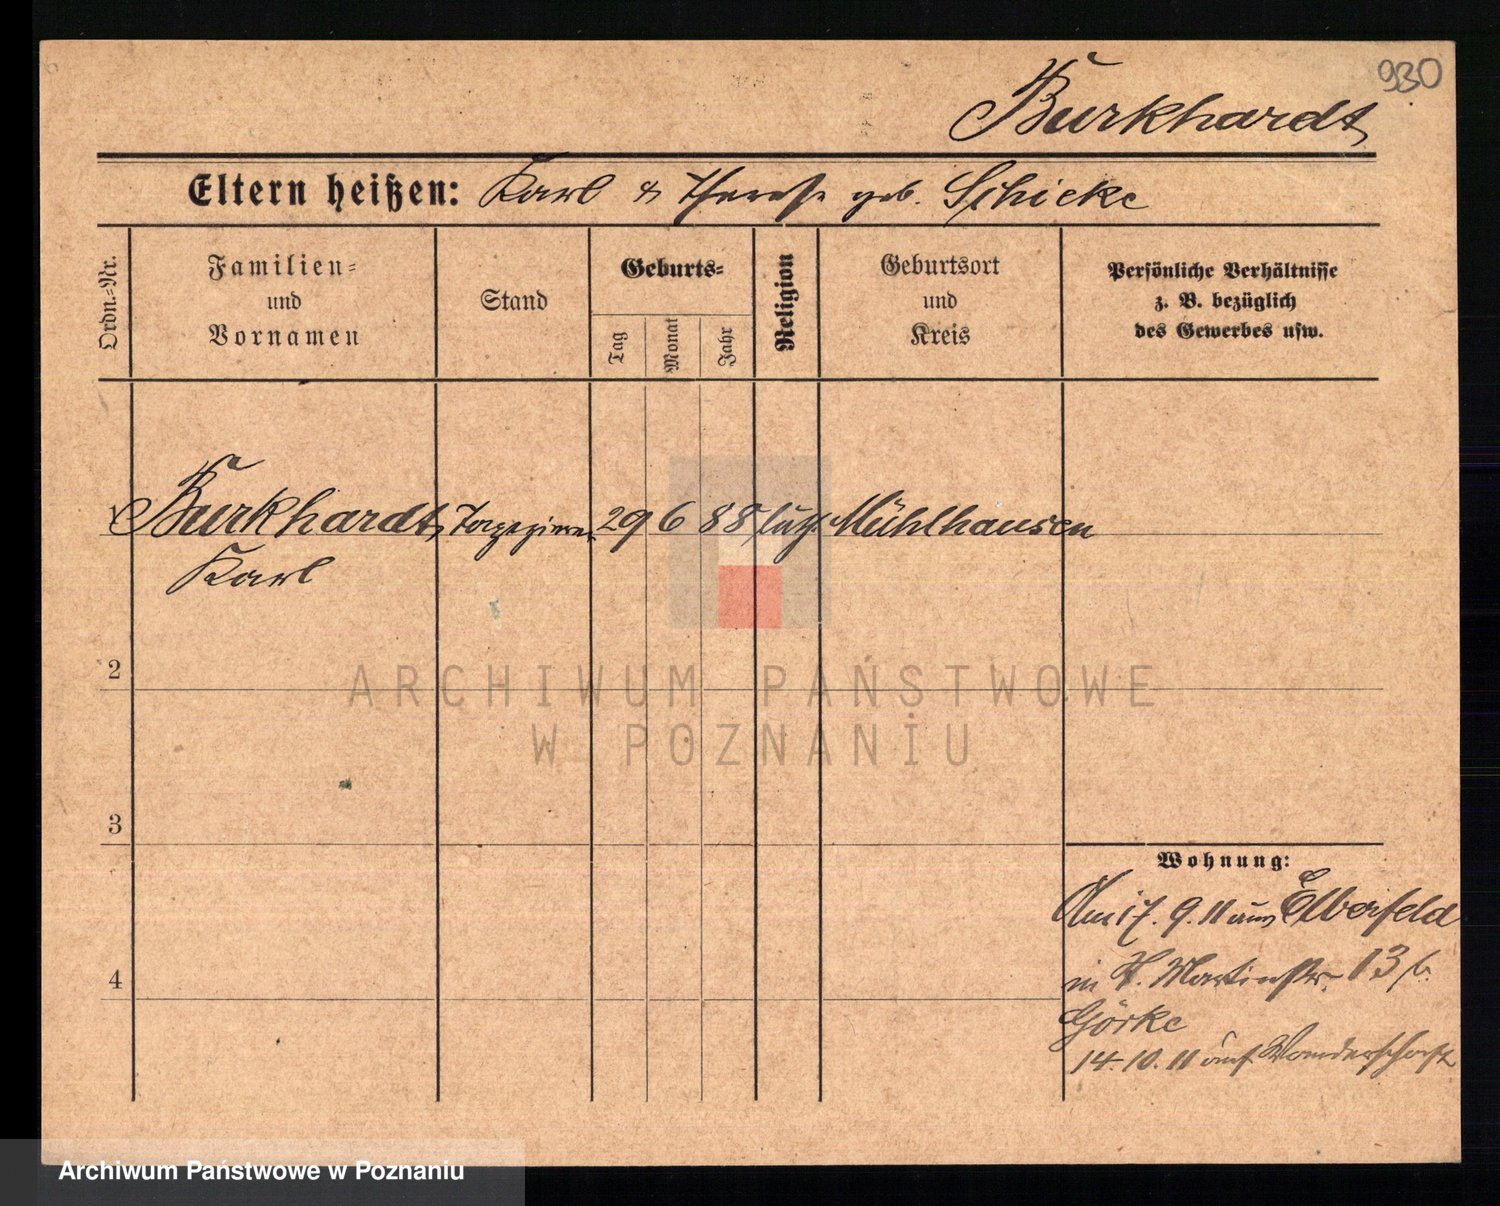 930
Burkhardt
Eltern heißen: Karl & Therese geb. Schicke
Ordn.-Nr.
Familien= und Vornamen
Stand
Geburts=
Tag
Monat
Jahr
Religion
Geburtsort und Kreis
Persönliche Verhältnisse
z. B. bezüglich
des Gewerbes usw.
1 Burkhardt, Tapezierer 29 6 88 luth. Mühlhausen
Karl
2
ARCHIWUM PAŃSTWOWE
W POZNANIU
3
Wohnung:
Am 17. 9. 11 aus Elberfeld
in St. Martinstr. 13 b.
4
Görke
14. 10. 11 auf Wanderschaft
Archiwum Państwowe w Poznaniu